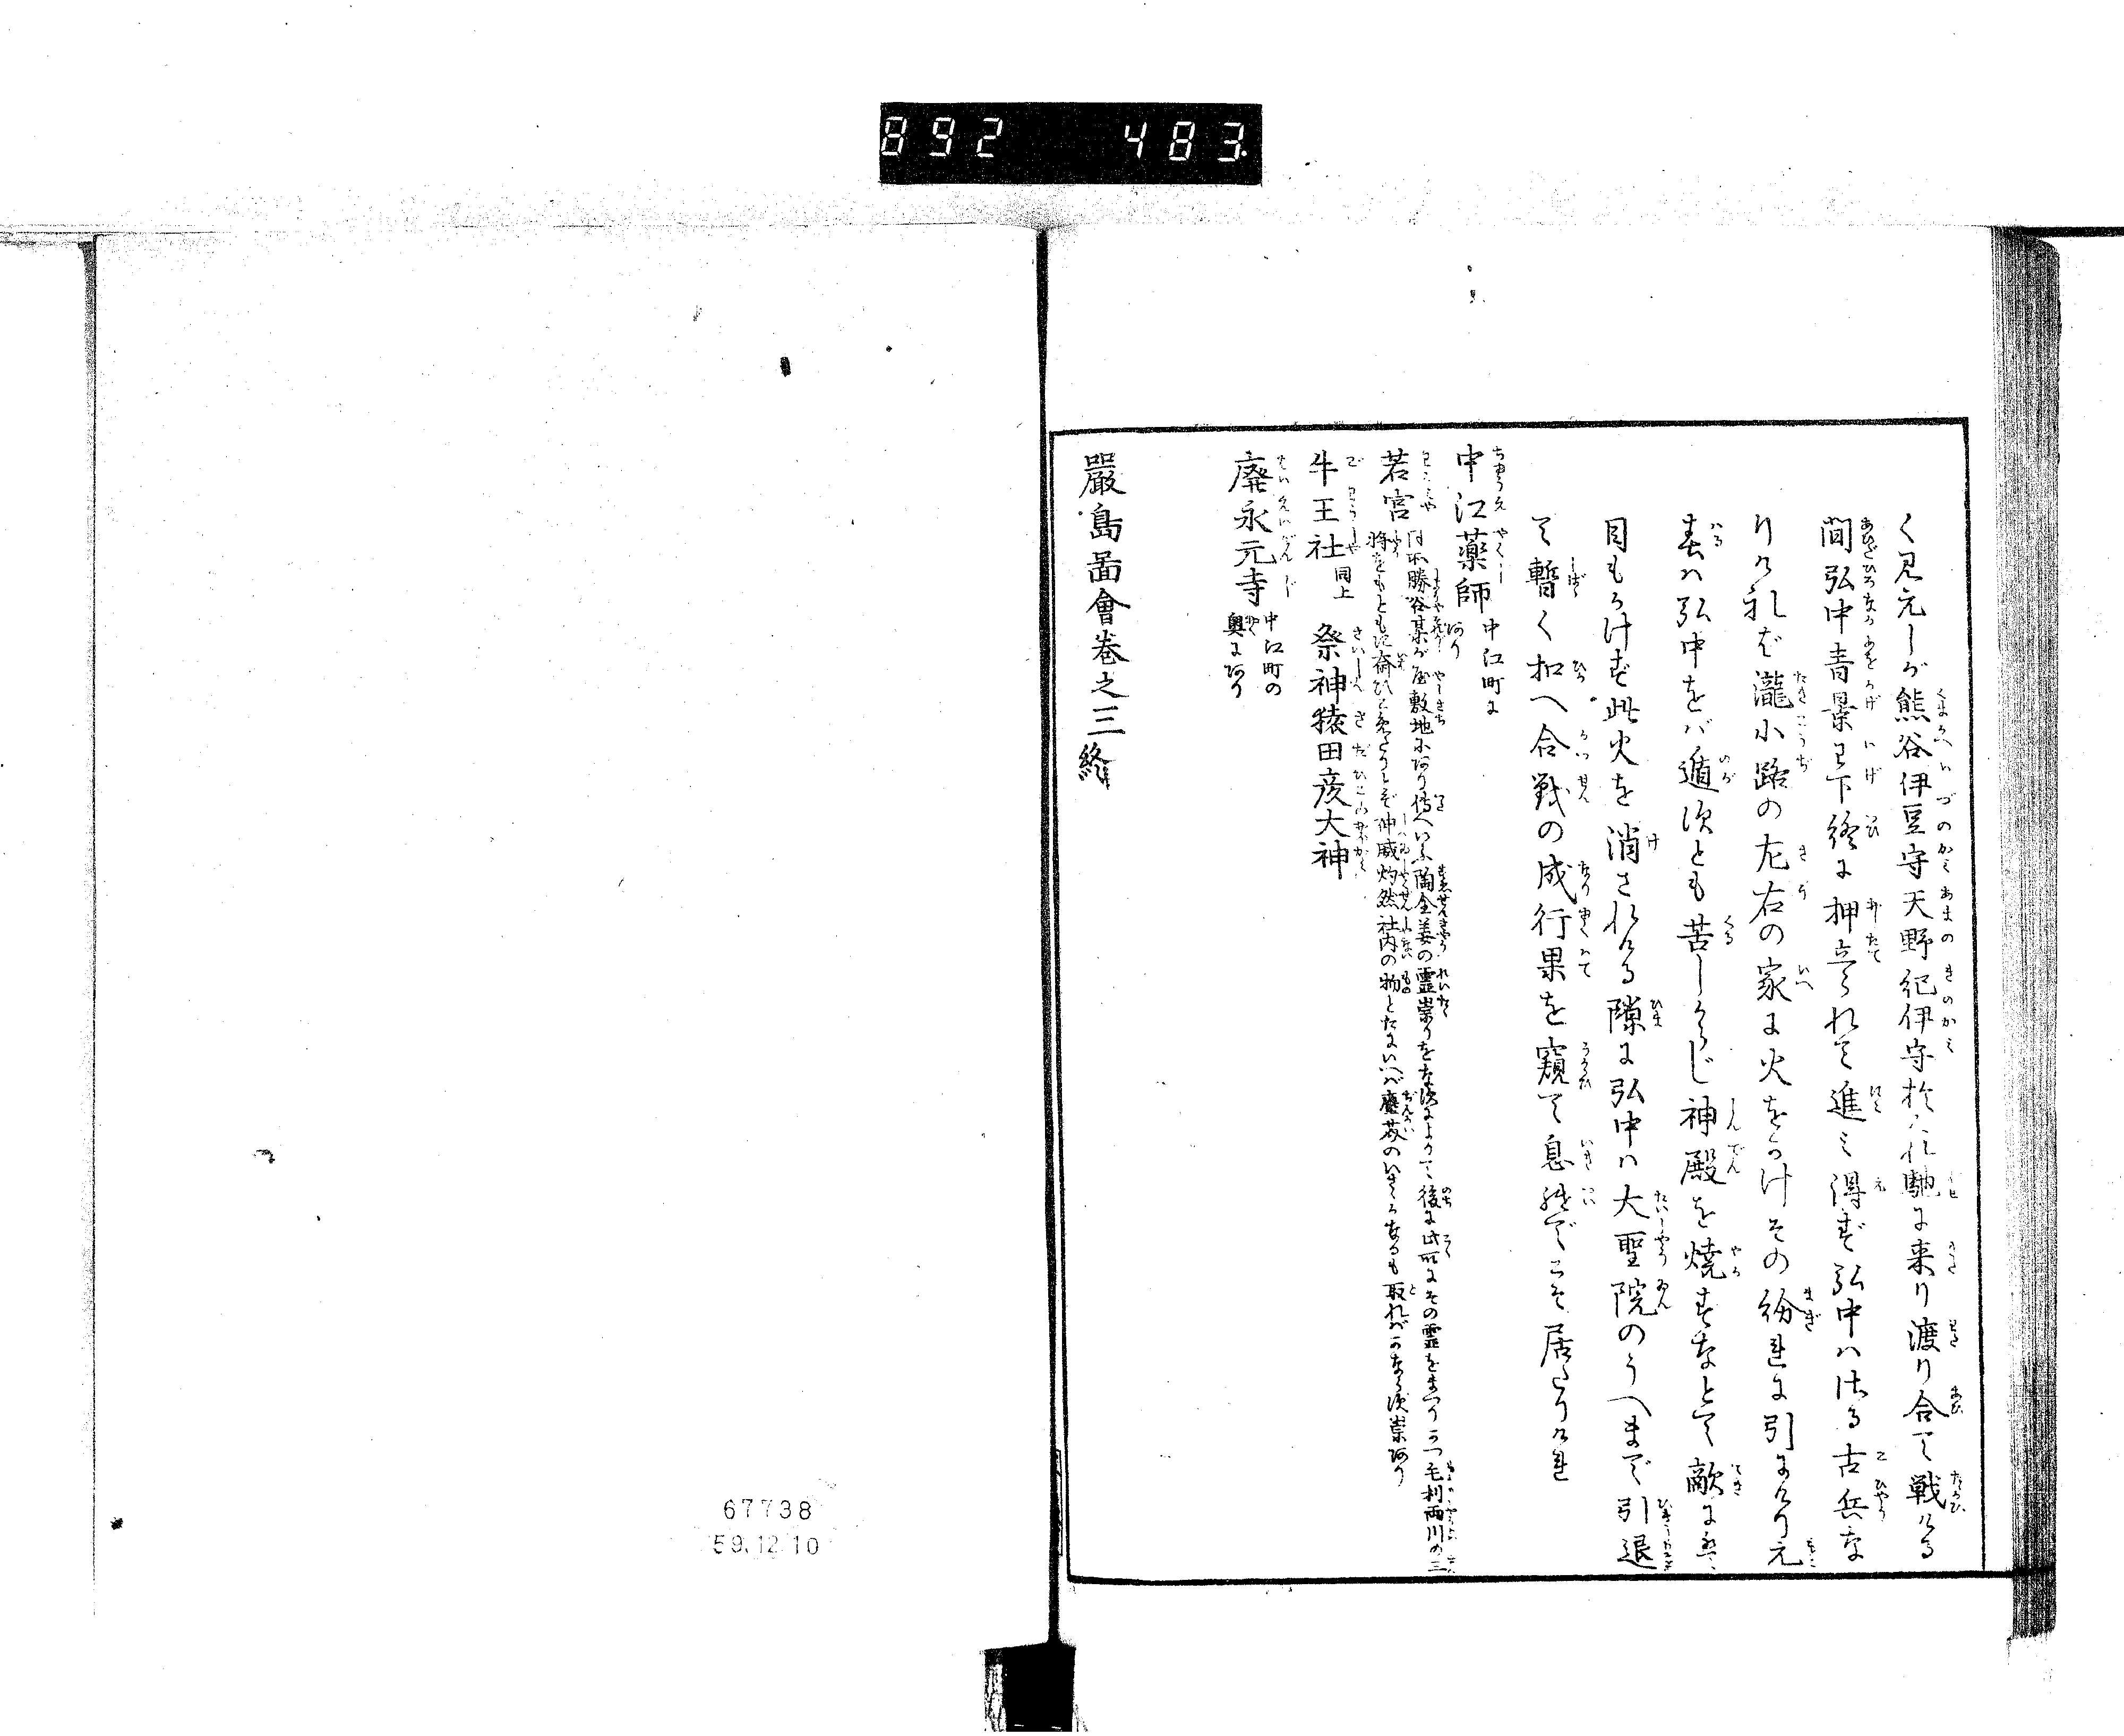 892 483
く見元しが熊谷伊豆守天野紀伊守於くれ馳に来り渡り合て戦ける
間弘中青景已下終に押立られて進み得ず弘中ハ法る古兵な
りけれバ瀧小路の左右の家に火をかけその紛れに引にけり元
春ハ弘中をバ遁次とも苦しからじ神殿を焼すなとて敵に
目もかけず此火を消されける隙に弘中ハ大聖院のうへまで引退
て暫く扣へ合戦の成行果を窺て息継でこそ居たりけれ
中江薬師 中江町に
あり
若宮 同所勝谷某が屋敷地にあり傳へいふ陶全姜の霊祟りをな次によりて後に此所にその霊をまつりかつ毛利両川の三
将をもともに齋ひこめたりとぞ神威灼然社内の物とだにいへバ塵芥のいさゝかなるも取れバかなら次祟あり
牛王社 同上 祭神猿田彦大神
廃永元寺 中江町の
奥にあり
嚴島圖會巻之三終
67738
59.12.10